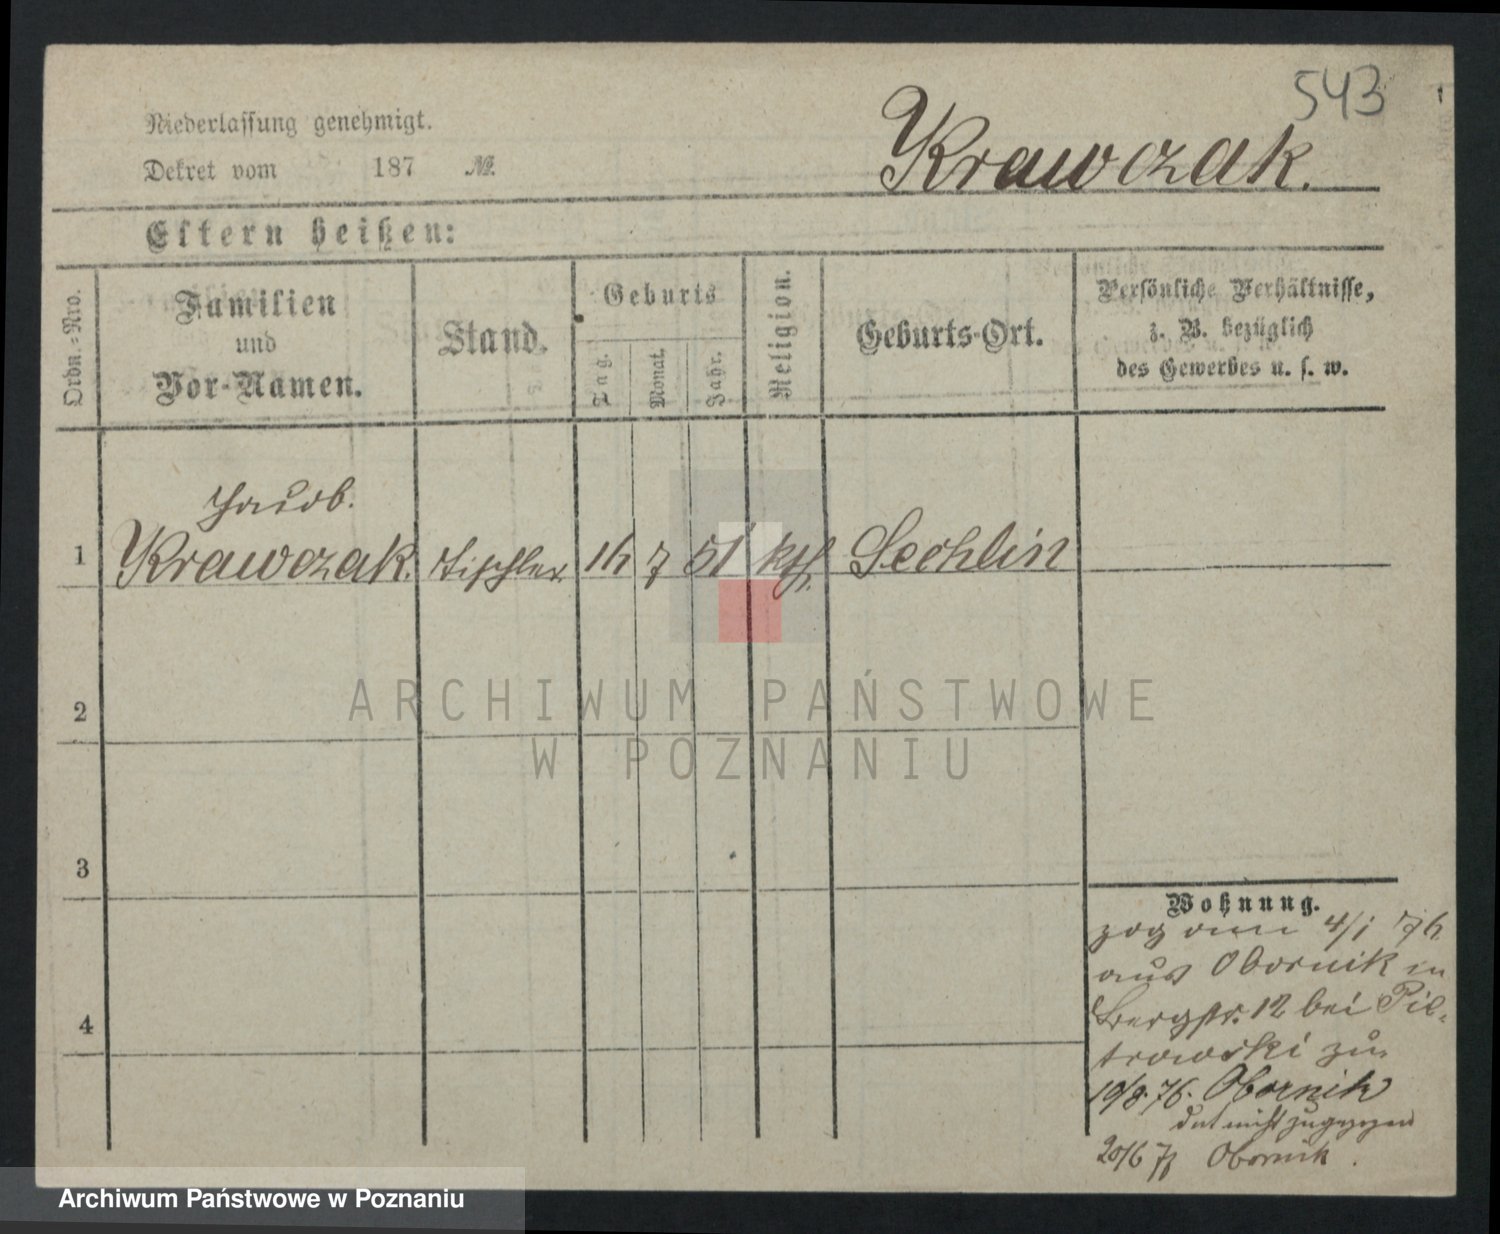 543
Niederlassung genehmigt.
Dekret vom 187 №.
Krawczak.
Eltern heißen:
Ordn.-Nro.
Familien
und
Vor-Namen.
Stand.
Geburts
Tag.
Monat.
Jahr.
Religion.
Geburts-Ort.
Persönliche Verhältnisse,
z. B. bezüglich
des Gewerbes u. s. w.
Jacob.
1 Krawczak. Tischler 7 51 kth. Sechlin
2
ARCHIWUM PAŃSTWOWE
W POZNANIU
3
4
Wohnung.
zog am 4/1 76
aus Obornik in
Bergstr. 12 bei Pil-
trowski zu.
19/8. 76. Obornik
dort nicht zugezogen
20/6 Obornik.
Archiwum Państwowe w Poznaniu